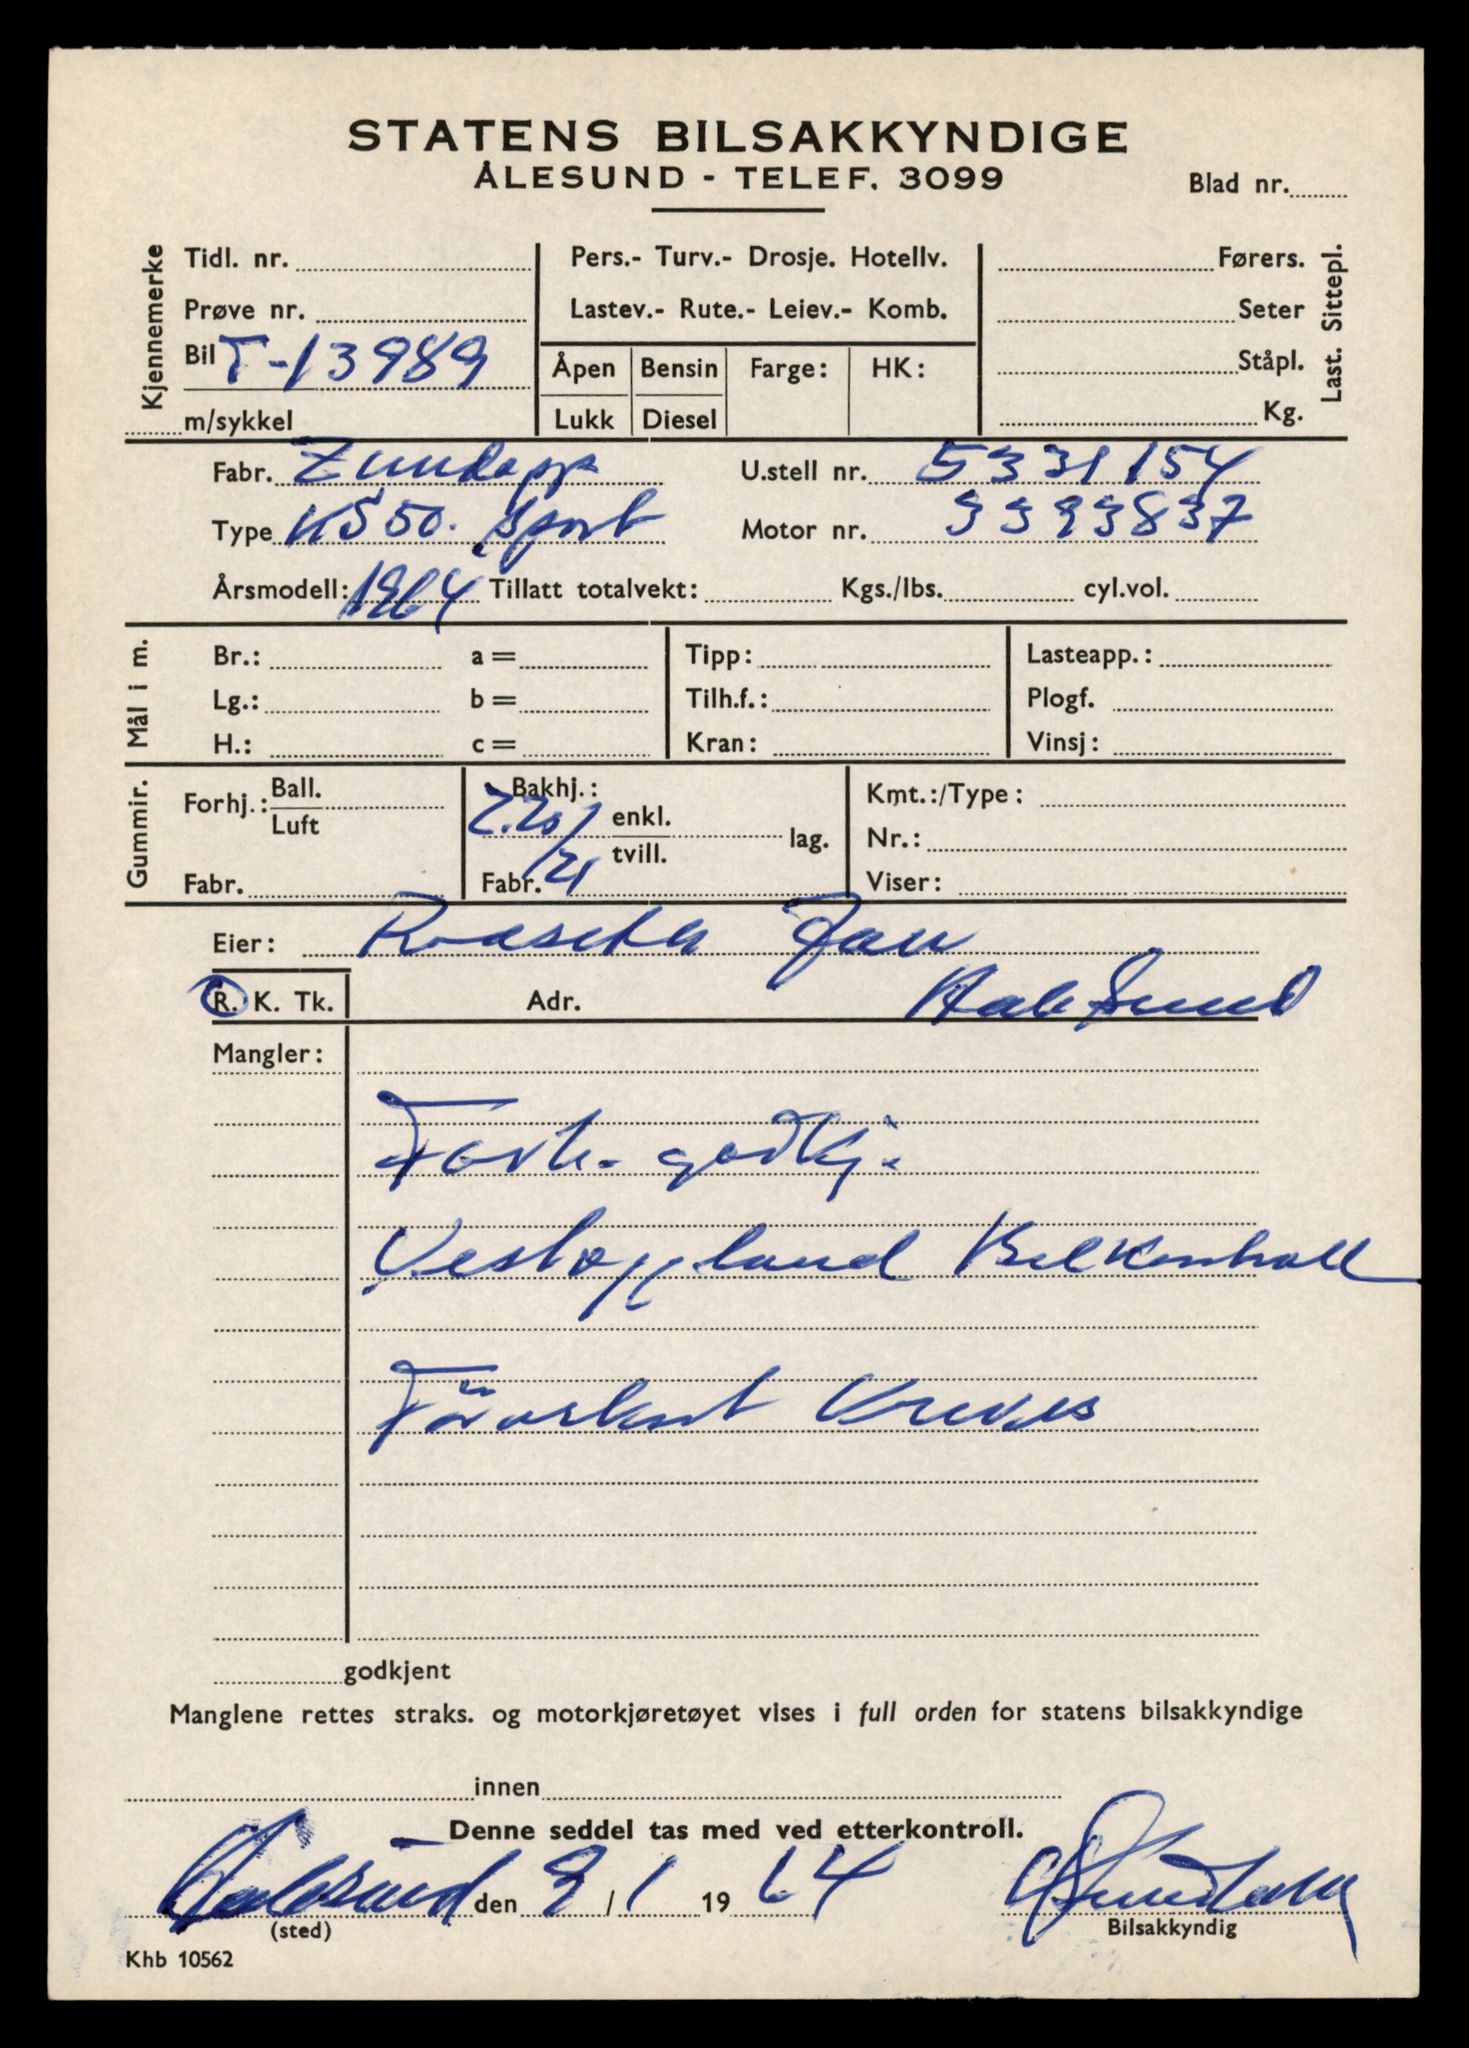 STATENS BILSAKKYNDIGE
ÅLESUND - TELEF. 3099
Blad nr.
Kjennemerke
Tidl. nr.
Prøve nr.
Bil T-13989
m/sykkel
Pers.- Turv.- Drosje. Hotellv.
Lastev.- Rute.- Leiev.- Komb.
Åpen Bensin Farge: HK:
Lukk Diesel
Førers.
Seter
Ståpl.
Kg.
Last. Sittepl.
Fabr. Zundapp U.stell nr. 5331154
Type KS 50. Sport Motor nr. 3393837
Årsmodell: 1964 Tillatt totalvekt: Kgs./lbs. cyl.vol.
Mål i m.
Br.: a = Tipp: Lasteapp.:
Lg.: b = Tilh.f.: Plogf.
H.: c = Kran: Vinsj:
Gummir.
Forhj.: Ball. Luft
Fabr.
Bakhj.:
enkl. tvill. lag.
Fabr. 21
Kmt.:/Type:
Nr.:
Viser:
Eier: Jan
R. K. Tk. Adr. Aalesund
Mangler:
Forh. godkj.
Vestoppland Bilkontroll
Förarkort
godkjent
Manglene rettes straks. og motorkjøretøyet vises i full orden for statens bilsakkyndige
innen
Denne seddel tas med ved etterkontroll.
Aalesund den 9/1 1964
(sted) Bilsakkyndig
Khb 10562